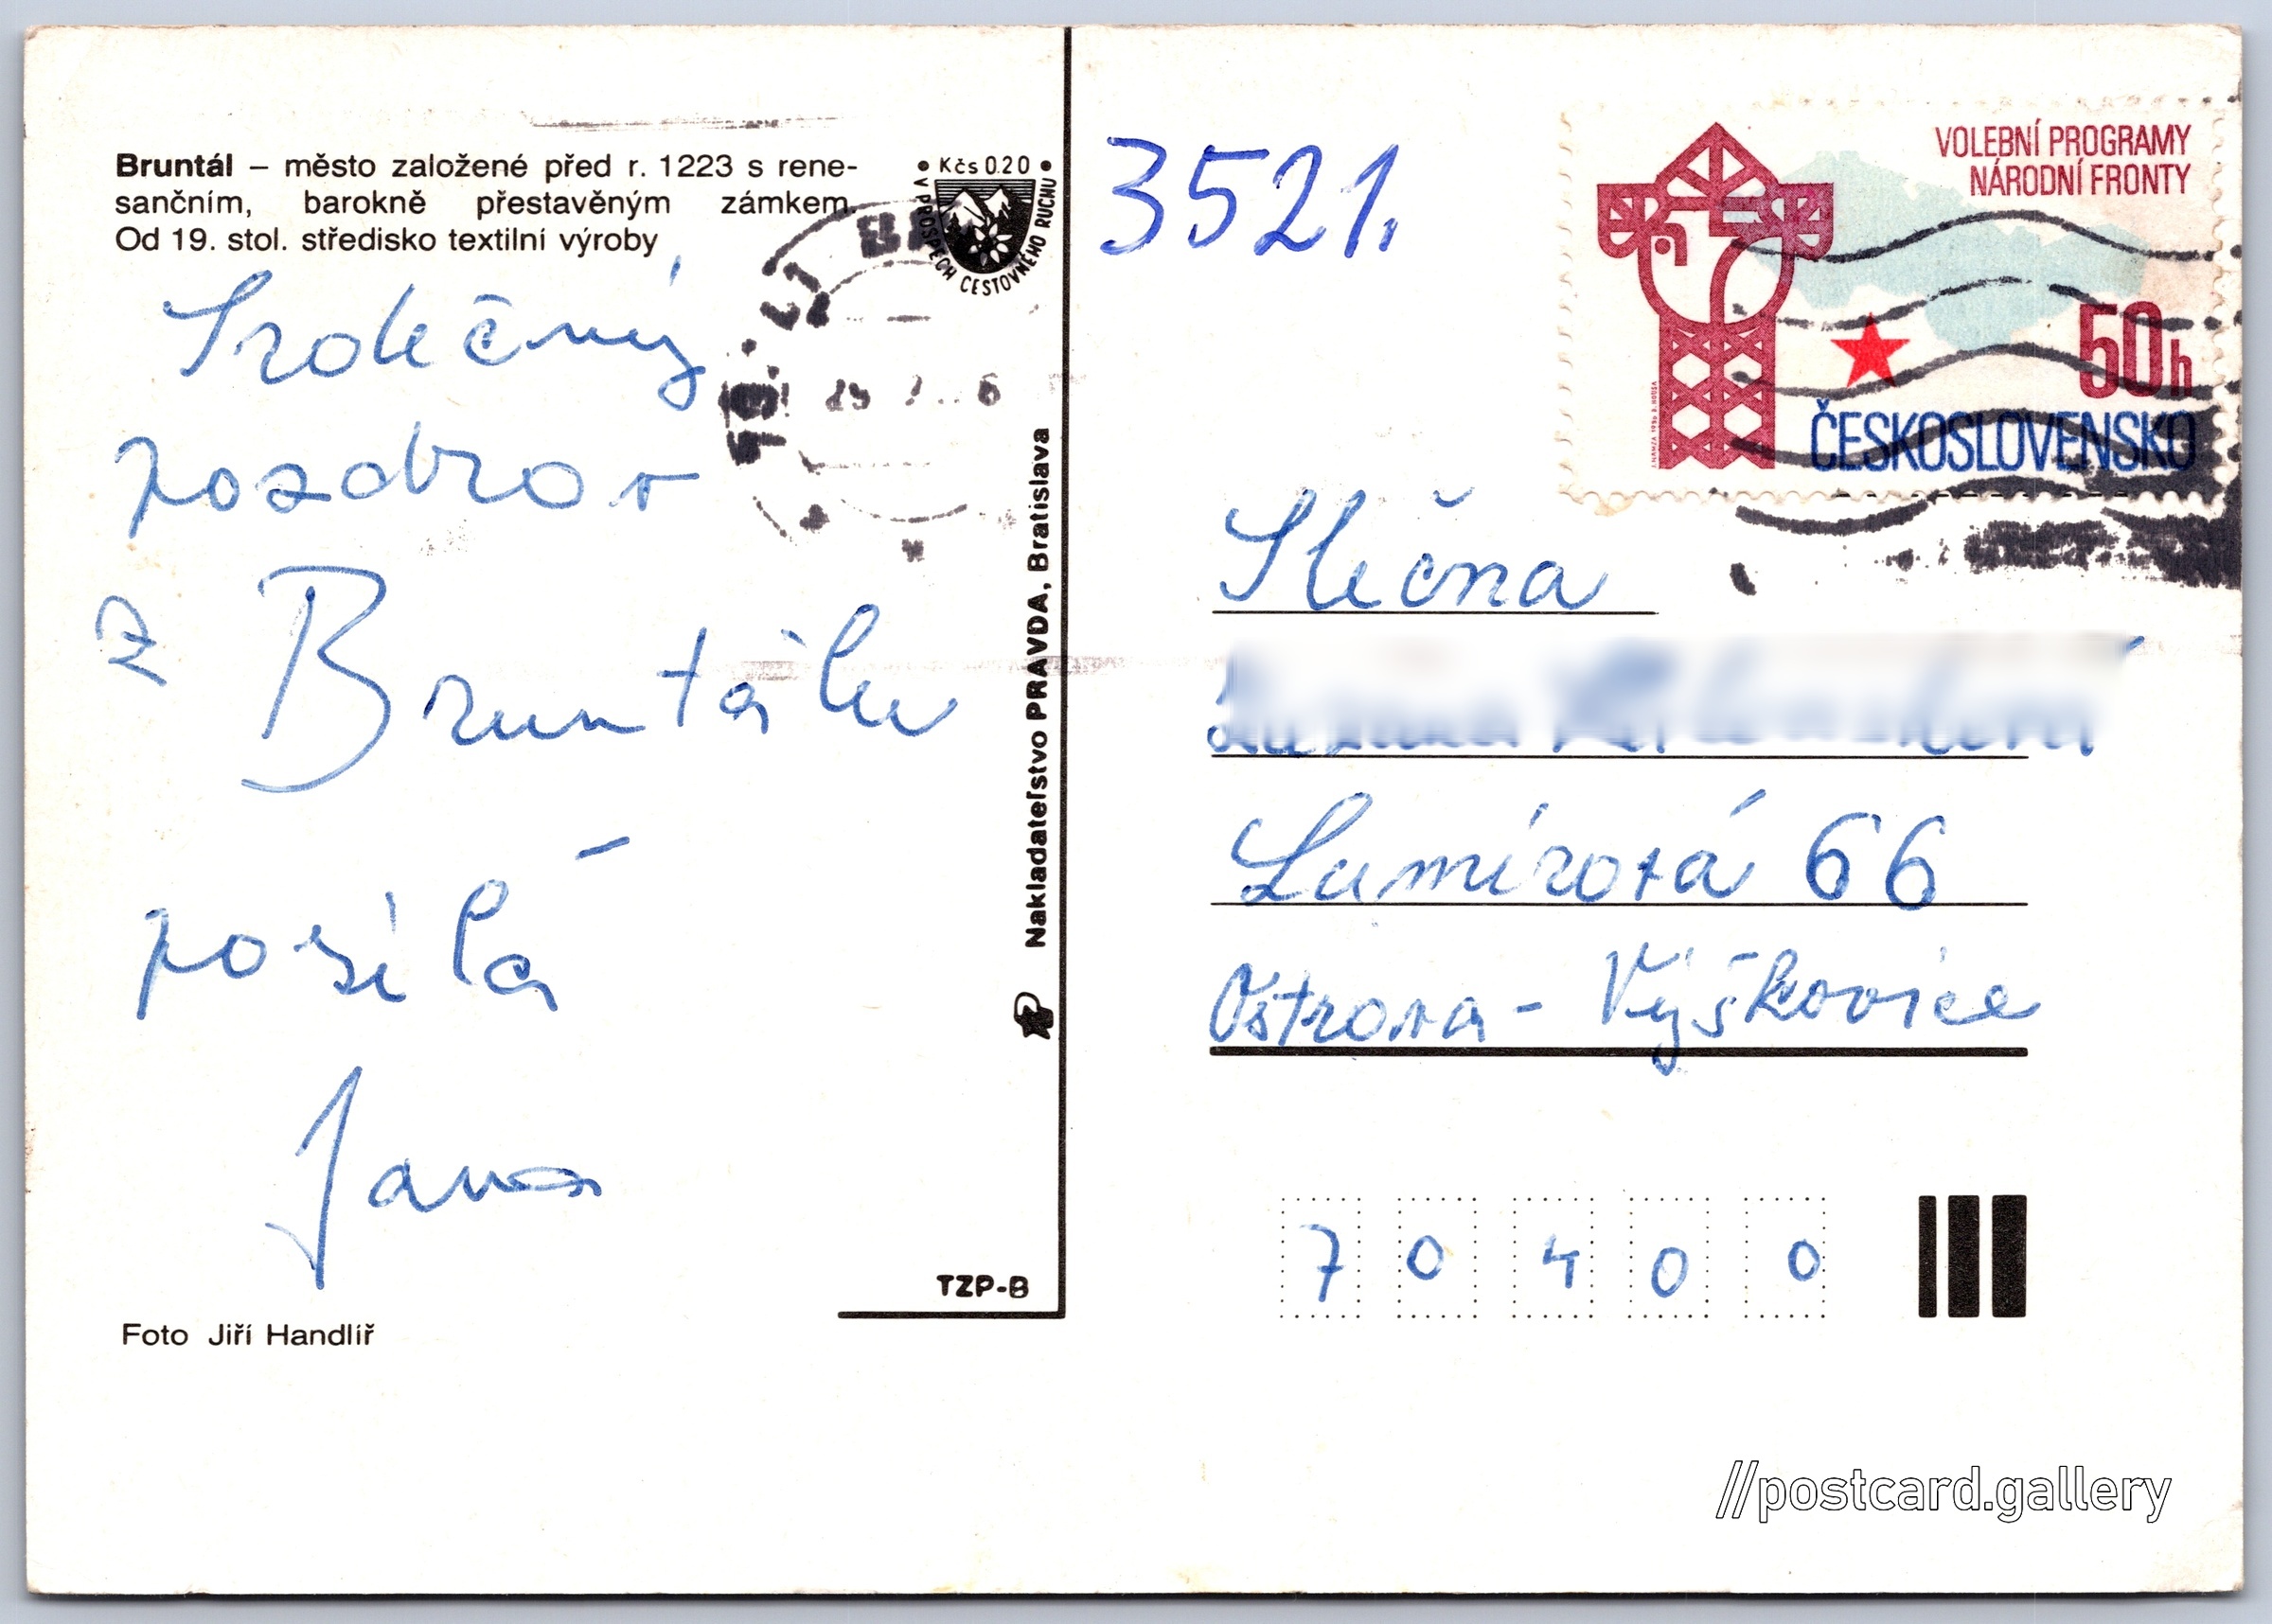 Bruntál – město založené před r. 1223 s rene-
sančním, barokně přestavěným zámkem.
Od 19. stol. středisko textilní výroby
Kčs 0.20
V PROSPĚCH CESTOVNÉHO RUCHU
Srdečný
pozdrav
z Bruntálu
posílá
Jana
Foto Jiří Handlíř
TZP-B
Nakladateľstvo PRAVDA, Bratislava
3521.
VOLEBNÍ PROGRAMY
NÁRODNÍ FRONTY
50h
ČESKOSLOVENSKO
Slečna
Lumírová 66
Ostrava - Výškovice
70400
//postcard.gallery